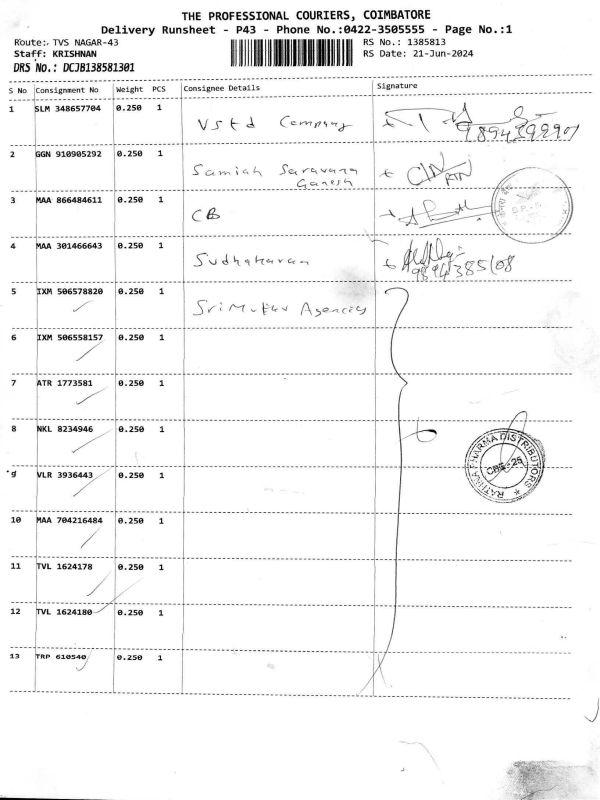 THE PROFESSIONAL COURIERS, COIMBATORE
Delivery Runsheet - P43 - Phone No.:0422-3505555 - Page No.:1
Route: TVS NAGAR-43
RS No.: 1385813
Staff: KRISHNAN
RS Date: 21-Jun-2024
DRS No.: DCJB138581301
S No Consignment No Weight PCS Consignee Details Signature
1 SLM 348657704 0.250 1 Company
9894399290
2 GGN 910905292 0.250 1 Samiah Saravana
Ganesh
3 MAA 866484611 0.250 1 CB
4 MAA 301466643 0.250 1 Sudhakaran
9894385108
5 IXM 506578820 0.250 1 Sri Mutuu Agencies
6 IXM 506558157 0.250 1
7 ATR 1773581 0.250 1
8 NKL 8234946 0.250 1
RATHNA PHARMA DISTRIBUTORS
CBE-25
9 VLR 3936443 0.250 1
10 MAA 704216484 0.250 1
11 TVL 1624178 0.250 1
12 TVL 1624180 0.250 1
13 TRP 610540 0.250 1